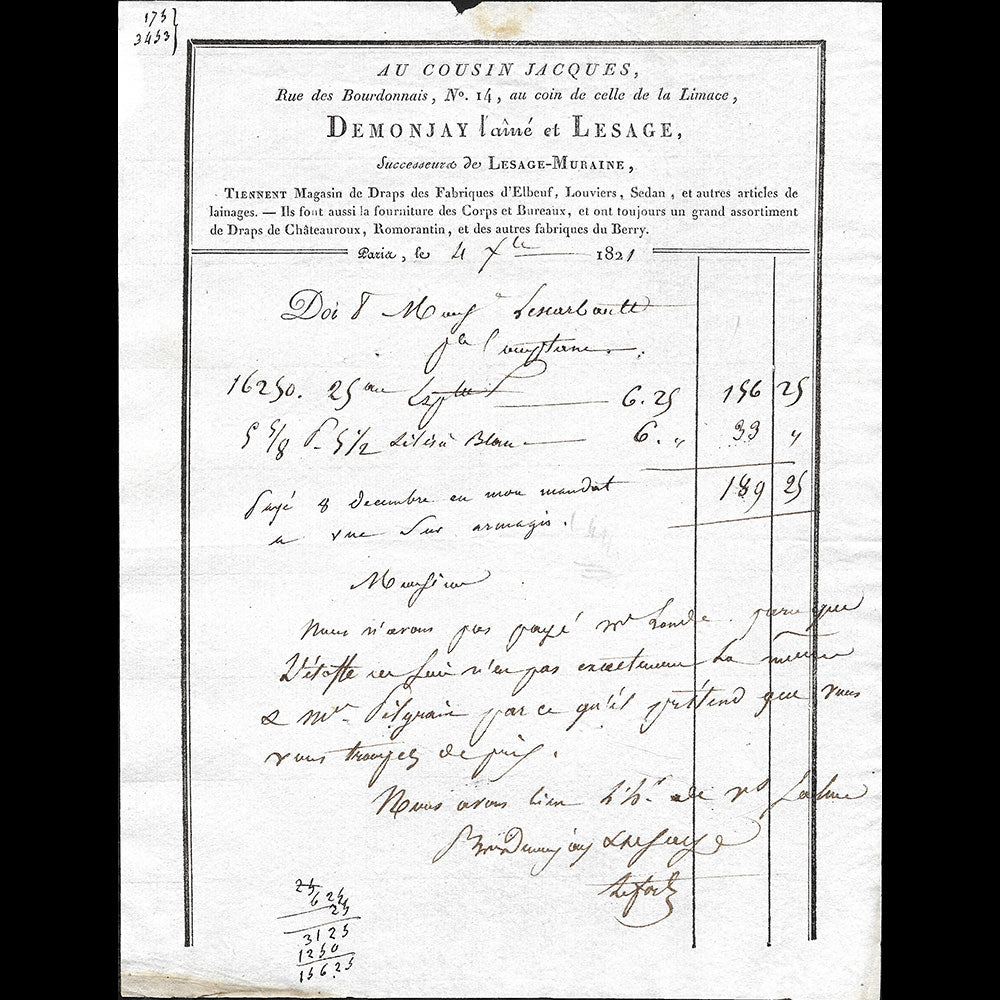 175
3453
AU COUSIN JACQUES,
Rue des Bourdonnais, Nº. 14, au coin de celle de la Limace,
DEMONJAY l'aîné et LESAGE,
Successeurs de LESAGE-MURAINE,
TIENNENT Magasin de Draps des Fabriques d'Elbeuf, Louviers, Sedan, et autres articles de
lainages. — Ils font aussi la fourniture des Corps et Bureaux, et ont toujours un grand assortiment
de Draps de Châteauroux, Romorantin, et des autres fabriques du Berry.
Paris, le 4 Xbre 1821
Doit Monsr
16250. 25 au 6.25 156 25
5 5/8 p. 5 1/2 Blanc 6. " 33 "
189 25
Payé 8 decembre en mon mandat
a vue sur armagis.
Monsieur
Nous n'avons pas payé Mr parce que
L'étoffe en pas exactement La même
& Mr Pelgrain parce qu'il prétend que vous
vous trompez de prix.
Nous avons bien l'h. de vs Saluer
Demonjay Lesage
25
6 25
25
3125
1250
15625